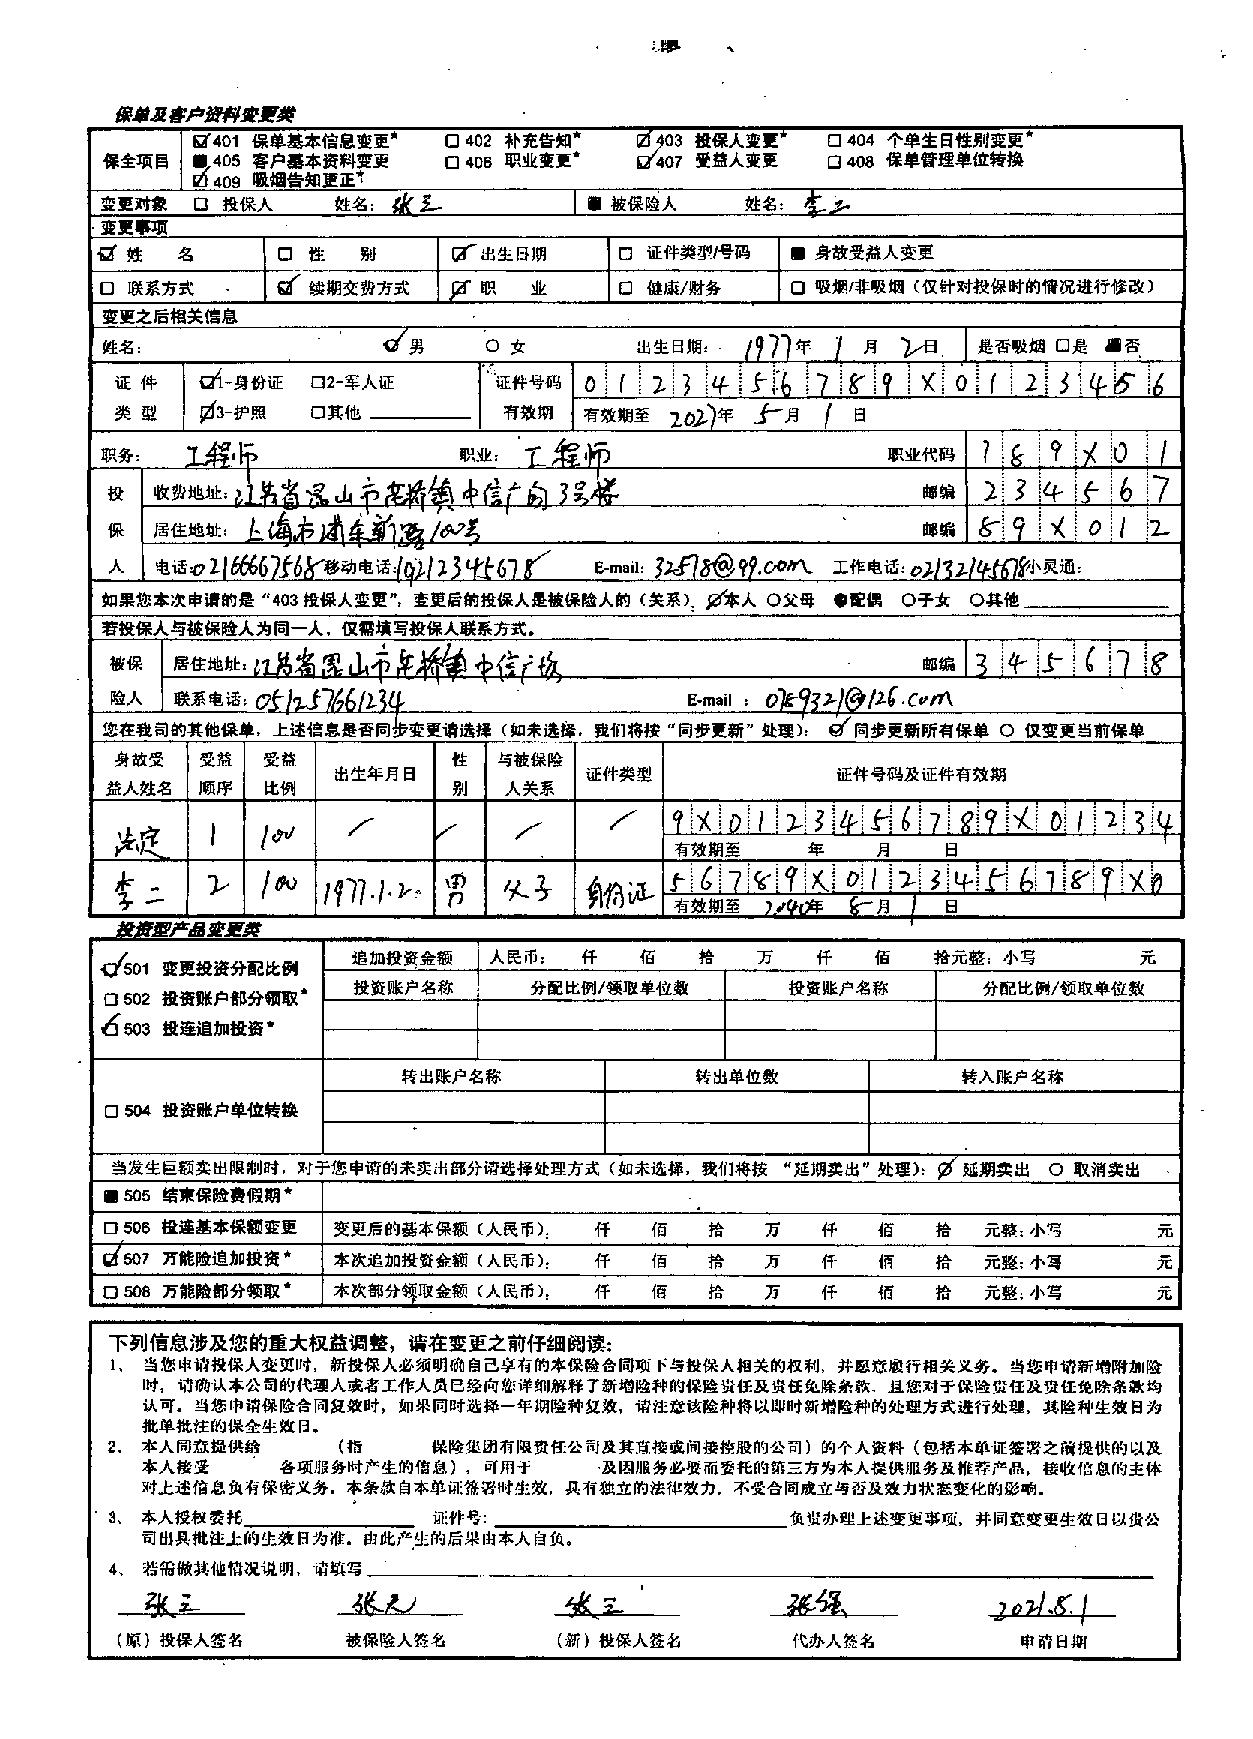 保单及客户资料变更类
保全项目
☑401 保单基本信息变更* □402 补充告知* ☑403 投保人变更* □404 个单生日性别变更*
■405 客户基本资料变更 □406 职业变更* ☑407 受益人变更 □408 保单管理单位转换
☑409 吸烟告知更正*
变更对象 □ 投保人 姓名：张三 ■ 被保险人 姓名：李二
变更事项
☑ 姓 名 □ 性 别 ☑ 出生日期 □ 证件类型/号码 ■ 身故受益人变更
□ 联系方式 ☑ 续期交费方式 ☑ 职 业 □ 健康/财务 □ 吸烟/非吸烟（仅针对投保时的情况进行修改）
变更之后相关信息
姓名： ☑男 ○女 出生日期：1977年1月2日 是否吸烟 □是 ■否
证件类型 ☑1-身份证 □2-军人证 证件号码 0123456789X0123456
☑3-护照 □其他 有效期 有效期至 2027年5月1日
职务：工程师 职业：工程师 职业代码 789X01
投保人 收费地址：江苏省昆山市花桥镇中信广场3号楼 邮编 234567
居住地址：上海市浦东新路100号 邮编 89X012
电话：02166667568 移动电话：19212345678 E-mail：32578@qq.com 工作电话：02132145678 小灵通：
如果您本次申请的是“403投保人变更”，变更后的投保人是被保险人的（关系）：☑本人 ○父母 ●配偶 ○子女 ○其他
若投保人与被保险人为同一人，仅需填写投保人联系方式。
被保险人 居住地址：江苏省昆山市花桥镇中信广场 邮编 345678
联系电话：051257661234 E-mail：0789321@126.com
您在我司的其他保单，上述信息是否同步变更请选择（如未选择，我们将按“同步更新”处理）：☑ 同步更新所有保单 ○ 仅变更当前保单
身故受益人姓名 受益顺序 受益比例 出生年月日 性别 与被保险人关系 证件类型 证件号码及证件有效期
法定 1 100 / / / / 9X0123456789X01234
有效期至 年 月 日
李二 2 100 1977.1.2 男 父子 身份证 56789X0123456789X0
有效期至 2040年8月1日
投资型产品变更类
☑501 变更投资分配比例 追加投资金额 人民币： 仟 佰 拾 万 仟 佰 拾元整：小写 元
□502 投资账户部分领取* 投资账户名称 分配比例/领取单位数 投资账户名称 分配比例/领取单位数
☑503 投连追加投资*
□504 投资账户单位转换 转出账户名称 转出单位数 转入账户名称
当发生巨额卖出限制时，对于您申请的未卖出部分请选择处理方式（如未选择，我们将按“延期卖出”处理）：☑ 延期卖出 ○ 取消卖出
■505 结束保险费假期*
□506 投连基本保额变更 变更后的基本保额（人民币）： 仟 佰 拾 万 仟 佰 拾 元整：小写 元
☑507 万能险追加投资* 本次追加投资金额（人民币）： 仟 佰 拾 万 仟 佰 拾 元整：小写 元
□508 万能险部分领取* 本次部分领取金额（人民币）： 仟 佰 拾 万 仟 佰 拾 元整：小写 元
下列信息涉及您的重大权益调整，请在变更之前仔细阅读：
1、 当您申请投保人变更时，新投保人必须明确自己享有的本保险合同项下与投保人相关的权利，并愿意履行相关义务。当您申请新增附加险
时，请确认本公司的代理人或者工作人员已经向您详细解释了新增险种的保险责任及责任免除条款，且您对于保险责任及责任免除条款均
认可。当您申请保险合同复效时，如果同时选择一年期险种复效，请注意该险种将以即时新增险种的处理方式进行处理，其险种生效日为
批单批注的保全生效日。
2、 本人同意提供给 （指 保险集团有限责任公司及其直接或间接控股的公司）的个人资料（包括本单证签署之前提供的以及
本人接受 各项服务时产生的信息），可用于 及因服务必要而委托的第三方为本人提供服务及推荐产品，接收信息的主体
对上述信息负有保密义务。本条款自本单证签署时生效，具有独立的法律效力，不受合同成立与否及效力状态变化的影响。
3、 本人授权委托 证件号： 负责办理上述变更事项，并同意变更生效日以贵公
司出具批注上的生效日为准。由此产生的后果由本人自负。
4、 若需做其他情况说明，请填写
张三 张元 张三 张强 2021.5.1
（原）投保人签名 被保险人签名 （新）投保人签名 代办人签名 申请日期